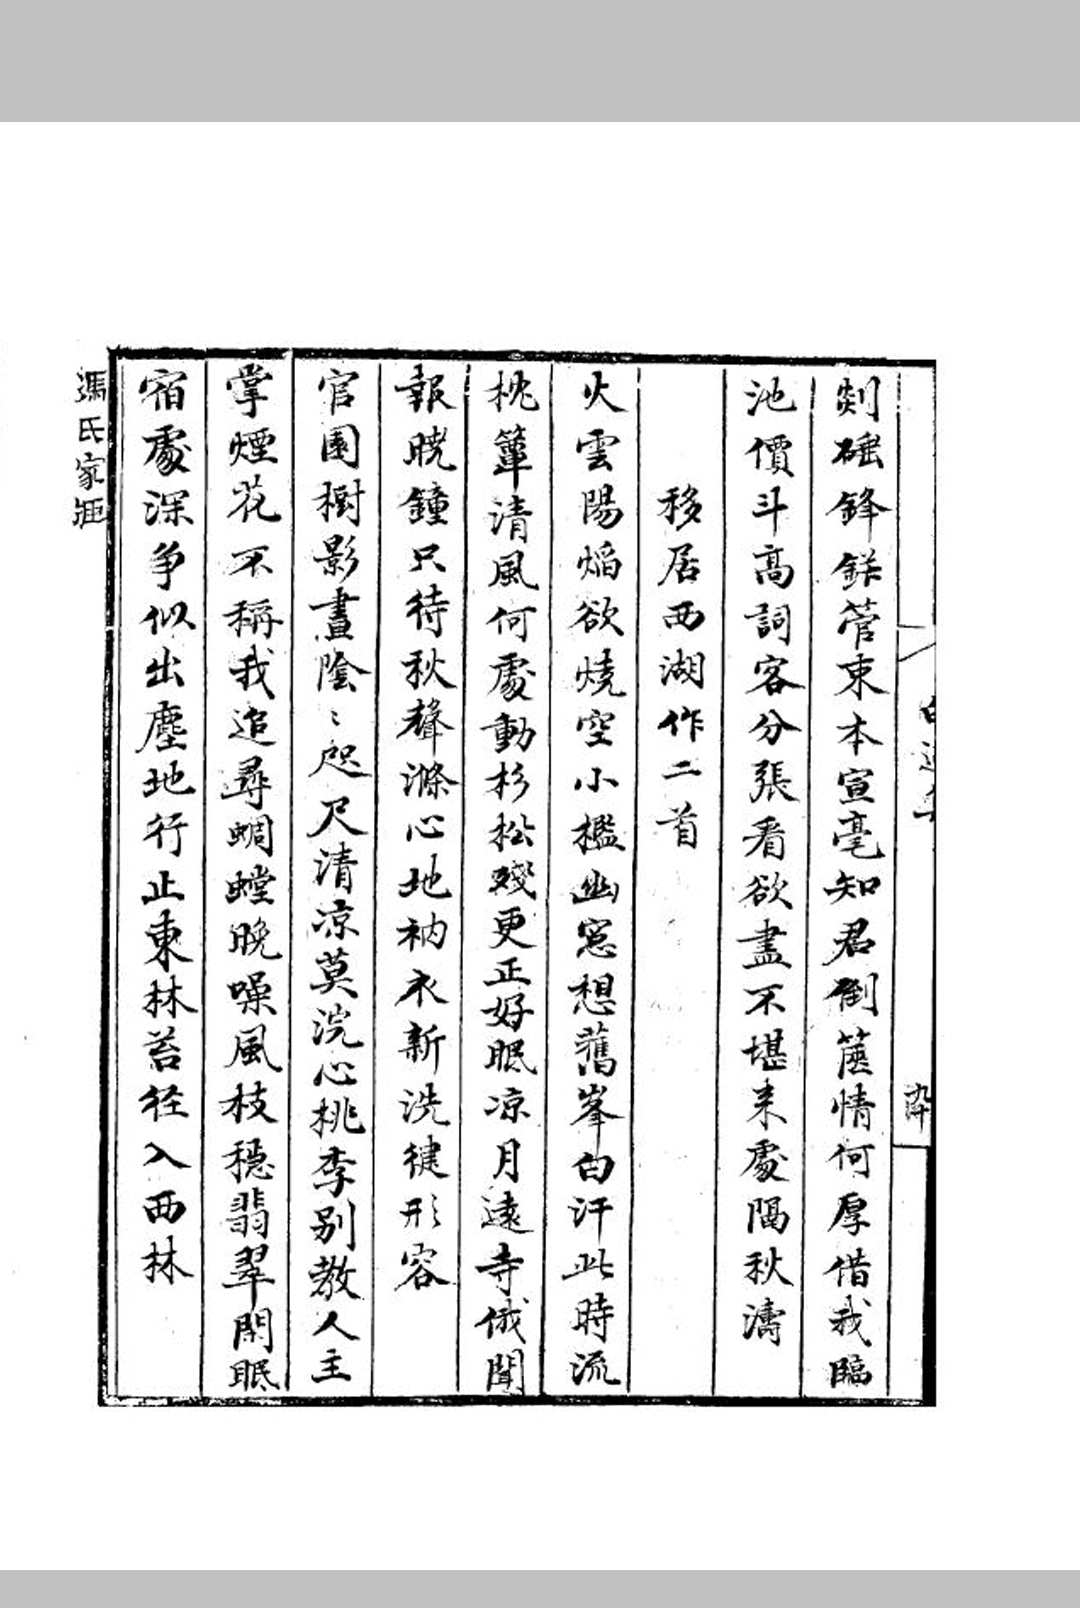 剡硾鋒鋩管束本宣毫知君倒篋情何厚借我臨
池價斗高詞客分張看欲盡不堪来處隔秋濤
移居西湖作二首
火雲陽焰欲燒空小檻幽窓想舊峯白汗此時流
枕簟清風何處動杉松殘更正好眠凉月遠寺俄聞
報曉鐘只待秋聲滌心地衲衣新洗健形容
官園樹影晝陰〻咫尺清凉莫浣心桃李别教人主
掌煙花不稱我追尋蜩螗晚噪風枝穩翡翠閑眠
宿處深爭似出塵地行止東林苔径入西林
馮氏家